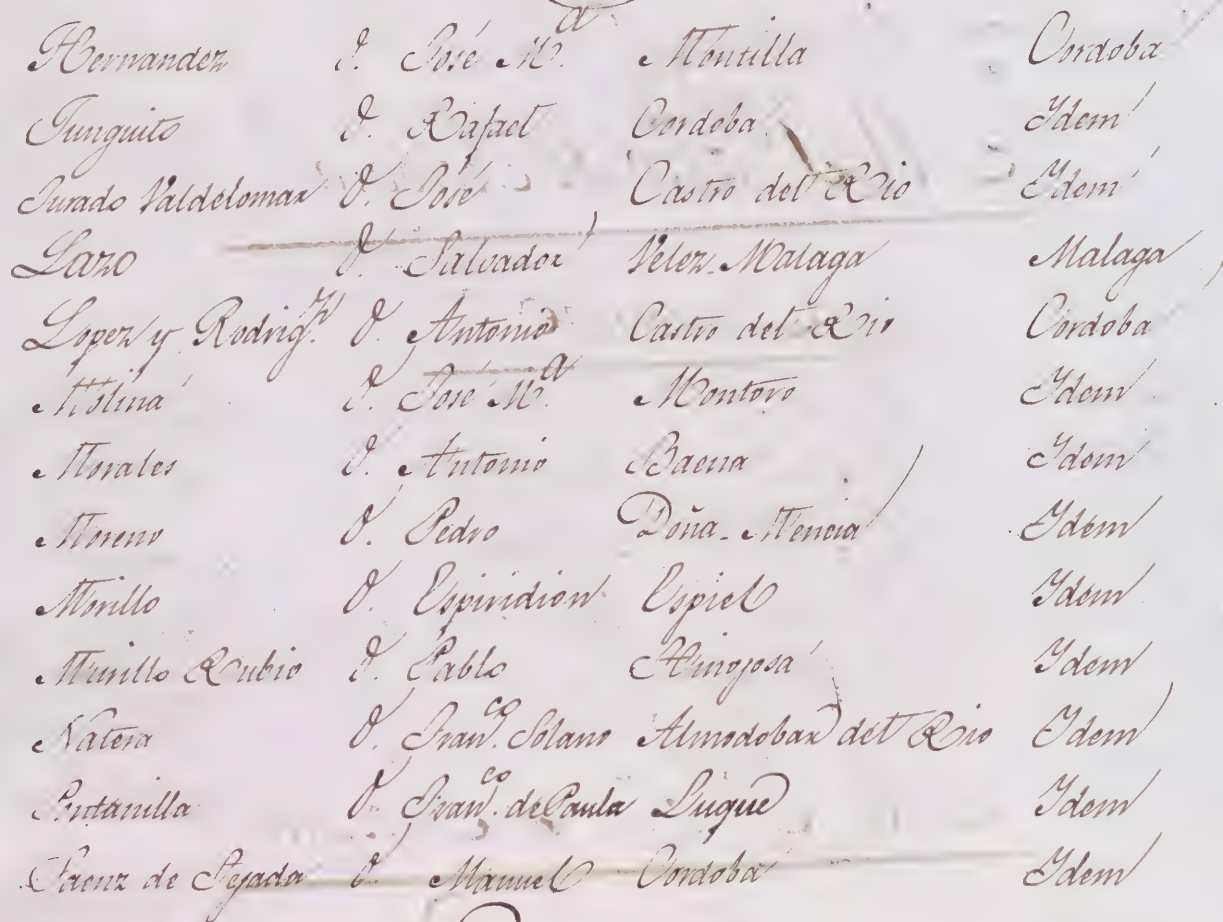 Hernandez D. José M.ª Montilla Cordoba
Junguito D. Rafael Cordoba Idem
Jurado Valdelomar D. José Castro del Rio Idem
Lazo D. Salvador Velez-Malaga Malaga
Lopez y Rodrig.z D. Antonio Castro del Rio Cordoba
Molina D. José M.ª Montoro Idem
Morales D. Antonio Baena Idem
Moreno D. Pedro Doña-Mencia Idem
Morillo D. Espiridion Espiel Idem
Murillo Rubio D. Pablo Hinojosa Idem
Natera D. Fran.co Solano Almodobar del Rio Idem
D. Fran.co de Paula Luque Idem
Saenz de Tejada D. Manuel Cordoba Idem